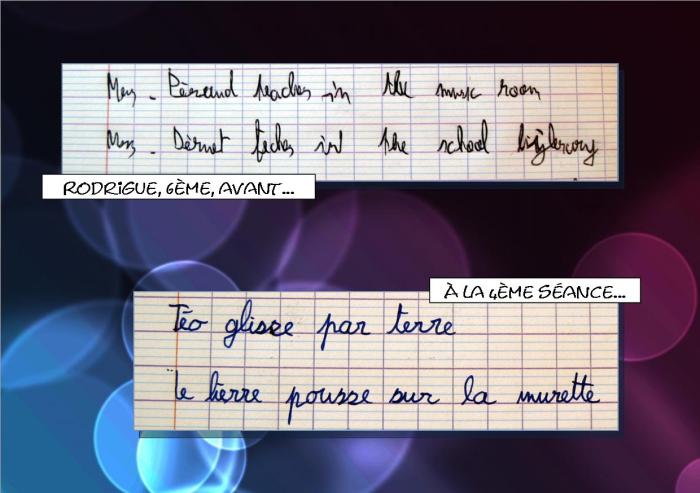 Mrs. Pèraud teaches in the music room
Mrs. Dèrnot teches in the school
RODRIGUE, 6ÈME, AVANT...
À LA 4ÈME SÉANCE...
Téo glisse par terre
Le lierre pousse sur la murette